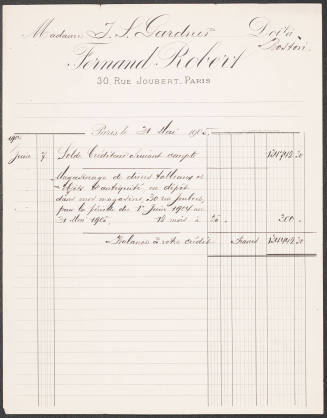 Madame J. L. Gardner Doit
Boston
Fernand Robert
30, Rue Joubert, Paris
Paris le 31 Mai 1905
Juin 7 Solde Créditeur suivant compte
Magasinage de divers tableaux et
objets d'antiquité en dépôt
dans mes magasins, 30 rue Joubert,
pour la période du 1er Juin 1904 au
31 Mai 1905. 12 mois à 25 300
Balance à votre crédit francs